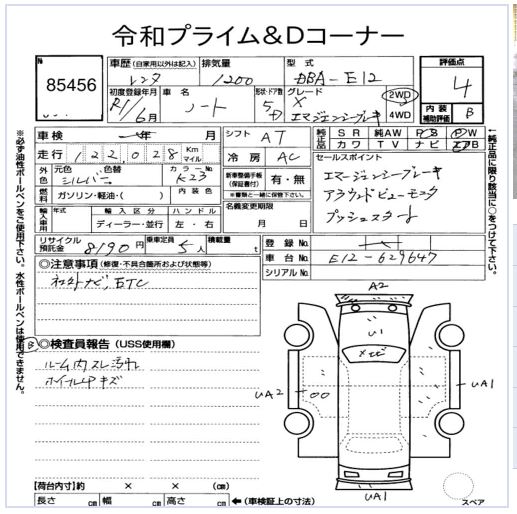 令和プライム&Dコーナー
№ 85456
車歴 (自家用以外は記入) レンタ
排気量 1200
型式 DBA-E12
評価点 4
初度登録年月 R1/6月
車名 ノート
形状・ドア数 5D
グレード X エマージェンシーブレーキ
2WD 4WD
内装補助評価 B
車検 年 月
シフト AT
純正品 SR 純AW PS PW
革 カワ TV ナビ エアB
走行 122,028 Km マイル
冷房 AC
セールスポイント
エマージェンシーブレーキ
アラウンドビューモニタ
プッシュスタート
外色 元色 シルバー 色替
カラーNo. K23
新車整備手帳(保証書付) 有・無
※書類と一緒に保管下さい。
燃料 ガソリン・軽油・( )
内装色
名義変更期限 月 日
輸入車用 年式 輸入区分 ディーラー・並行 ハンドル 左・右
リサイクル預託金 8190円
乗車定員 5人
積載量 t
登録No.
車台No. E12-629647
シリアルNo.
◎注意事項 (修復・不具合箇所および状態等)
ETC
◎検査員報告 (USS使用欄)
B
ルーム内スレ汚れ
キズ
A2
U1
UA2
UA1
UA1
スペア
【荷台内寸】約 × × (cm)
長さ cm 幅 cm 高さ cm ←(車検証上の寸法)
※必ず油性ボールペンをご使用下さい。水性ボールペンは使用できません。
↑純正品に限り該当に○をつけて下さい。